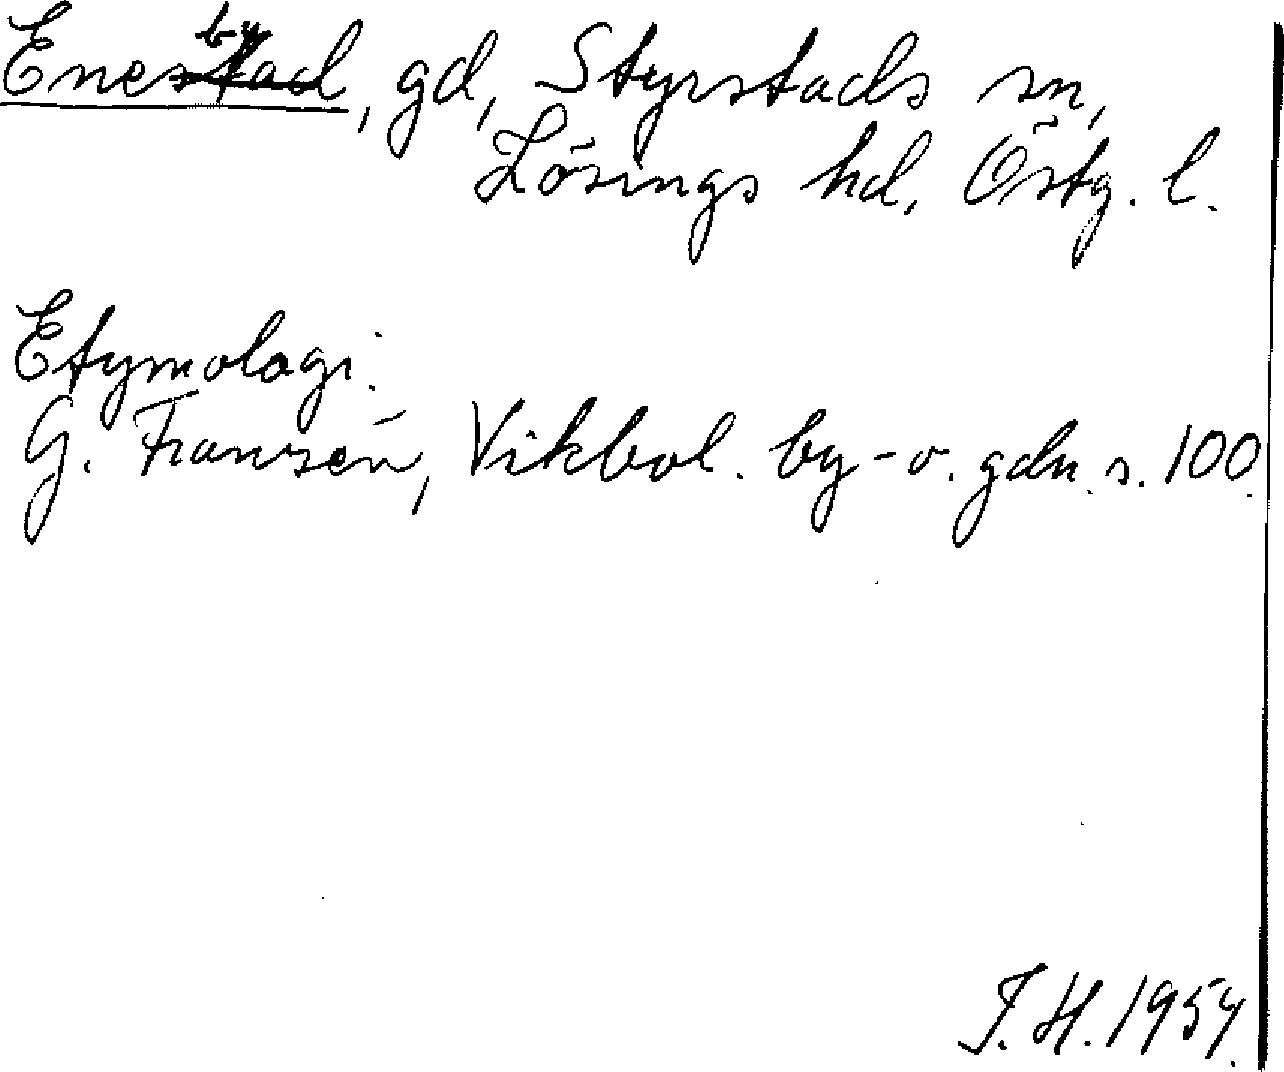 Eneby, gd, Styrstads sn,
Lösings hd, Östg. l.
Etymologi.
G. Franzén, Vikbol. by- o. gdn. s. 100.
J. H. 1954.